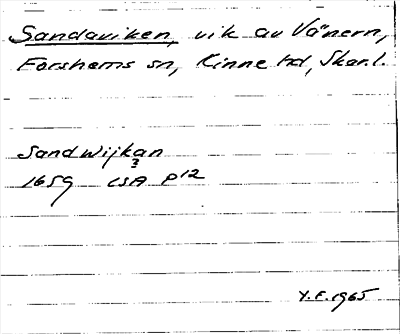 Sandaviken, vik av Vänern,
Forshems sn, Kinne hd, Skar.l.
Sandwijkan
?
1659 LSA P12
Y.F. 1965